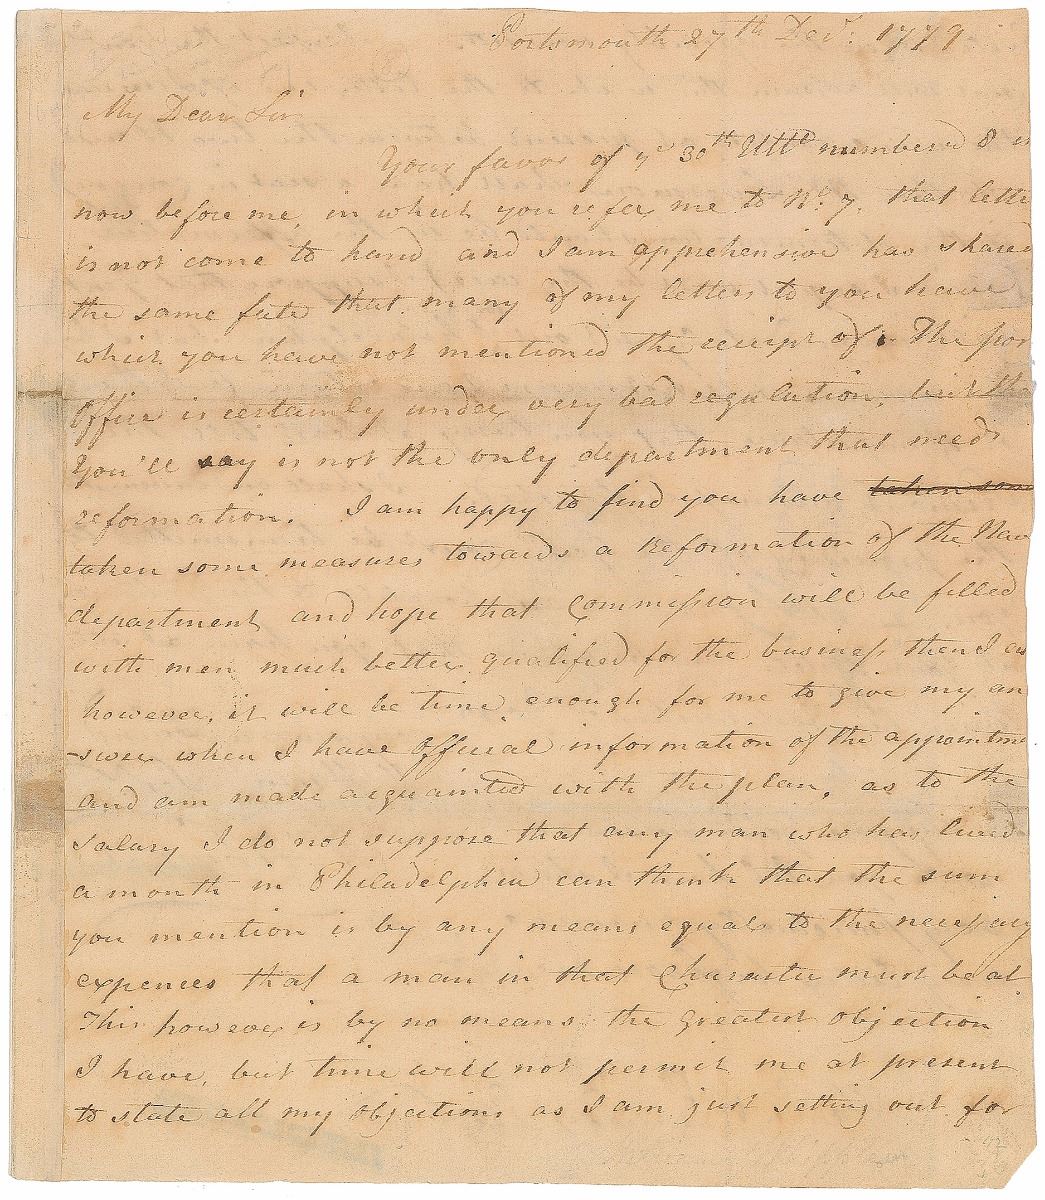 Portsmouth 27th Decr. 1779
My Dear Sir
Your favor of ye 30th Ultto numbered 8 is
now before me, in which you refer me to No. 7. that lette
is not come to hand and I am apprehensive has shared
the same fate that many of my letters to you have
which you have not mentioned the receipt of. The pos
Office is certainly under very bad regulation, but tha
You'll say is not the only department that needs
reformation. I am happy to find you have taken some
taken some measures towards a Reformation of the Nav
department and hope that Commission will be filled
with men much better qualified for the business then I am
however, it will be time enough for me to give my an
-swer when I have Official information of the appointme
and am made acquainted with the plan, as to the
salary I do not suppose that any man who has lived
a month in Philadelphia can think that the sum
you mention is by any means equal to the necessary
expences that a man in that Character must be at
This however is by no means the greatest objection
I have, but time will not permit me at present
to state all my objections as I am just setting out for